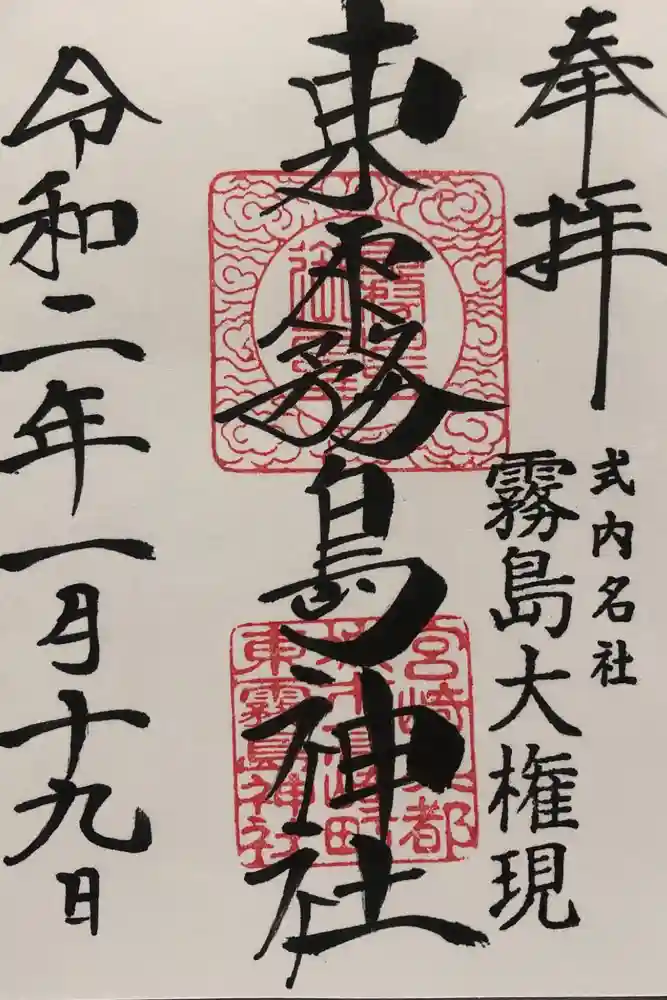 奉拝
式内名社
霧島大権現
東霧島神社
宮崎県都
城市高崎町
東霧島神社
令和二年一月十九日